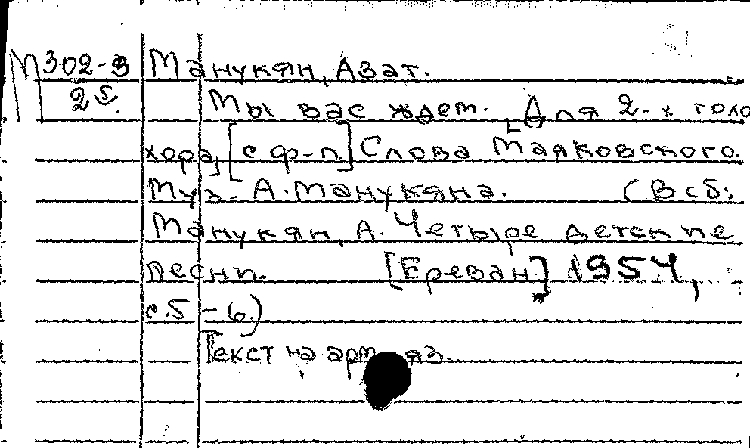 М302-3 Манукян, Азат.
25. Мы вас ждем. Для 2-х голо
хора, [с ф-п.] Слова Маяковского.
Муз. А. Манукяна. (В сб:
Манукян, А. Четыре детские
песни. [Ереван] 1954,
с.5-6.)
Текст на арм. яз.